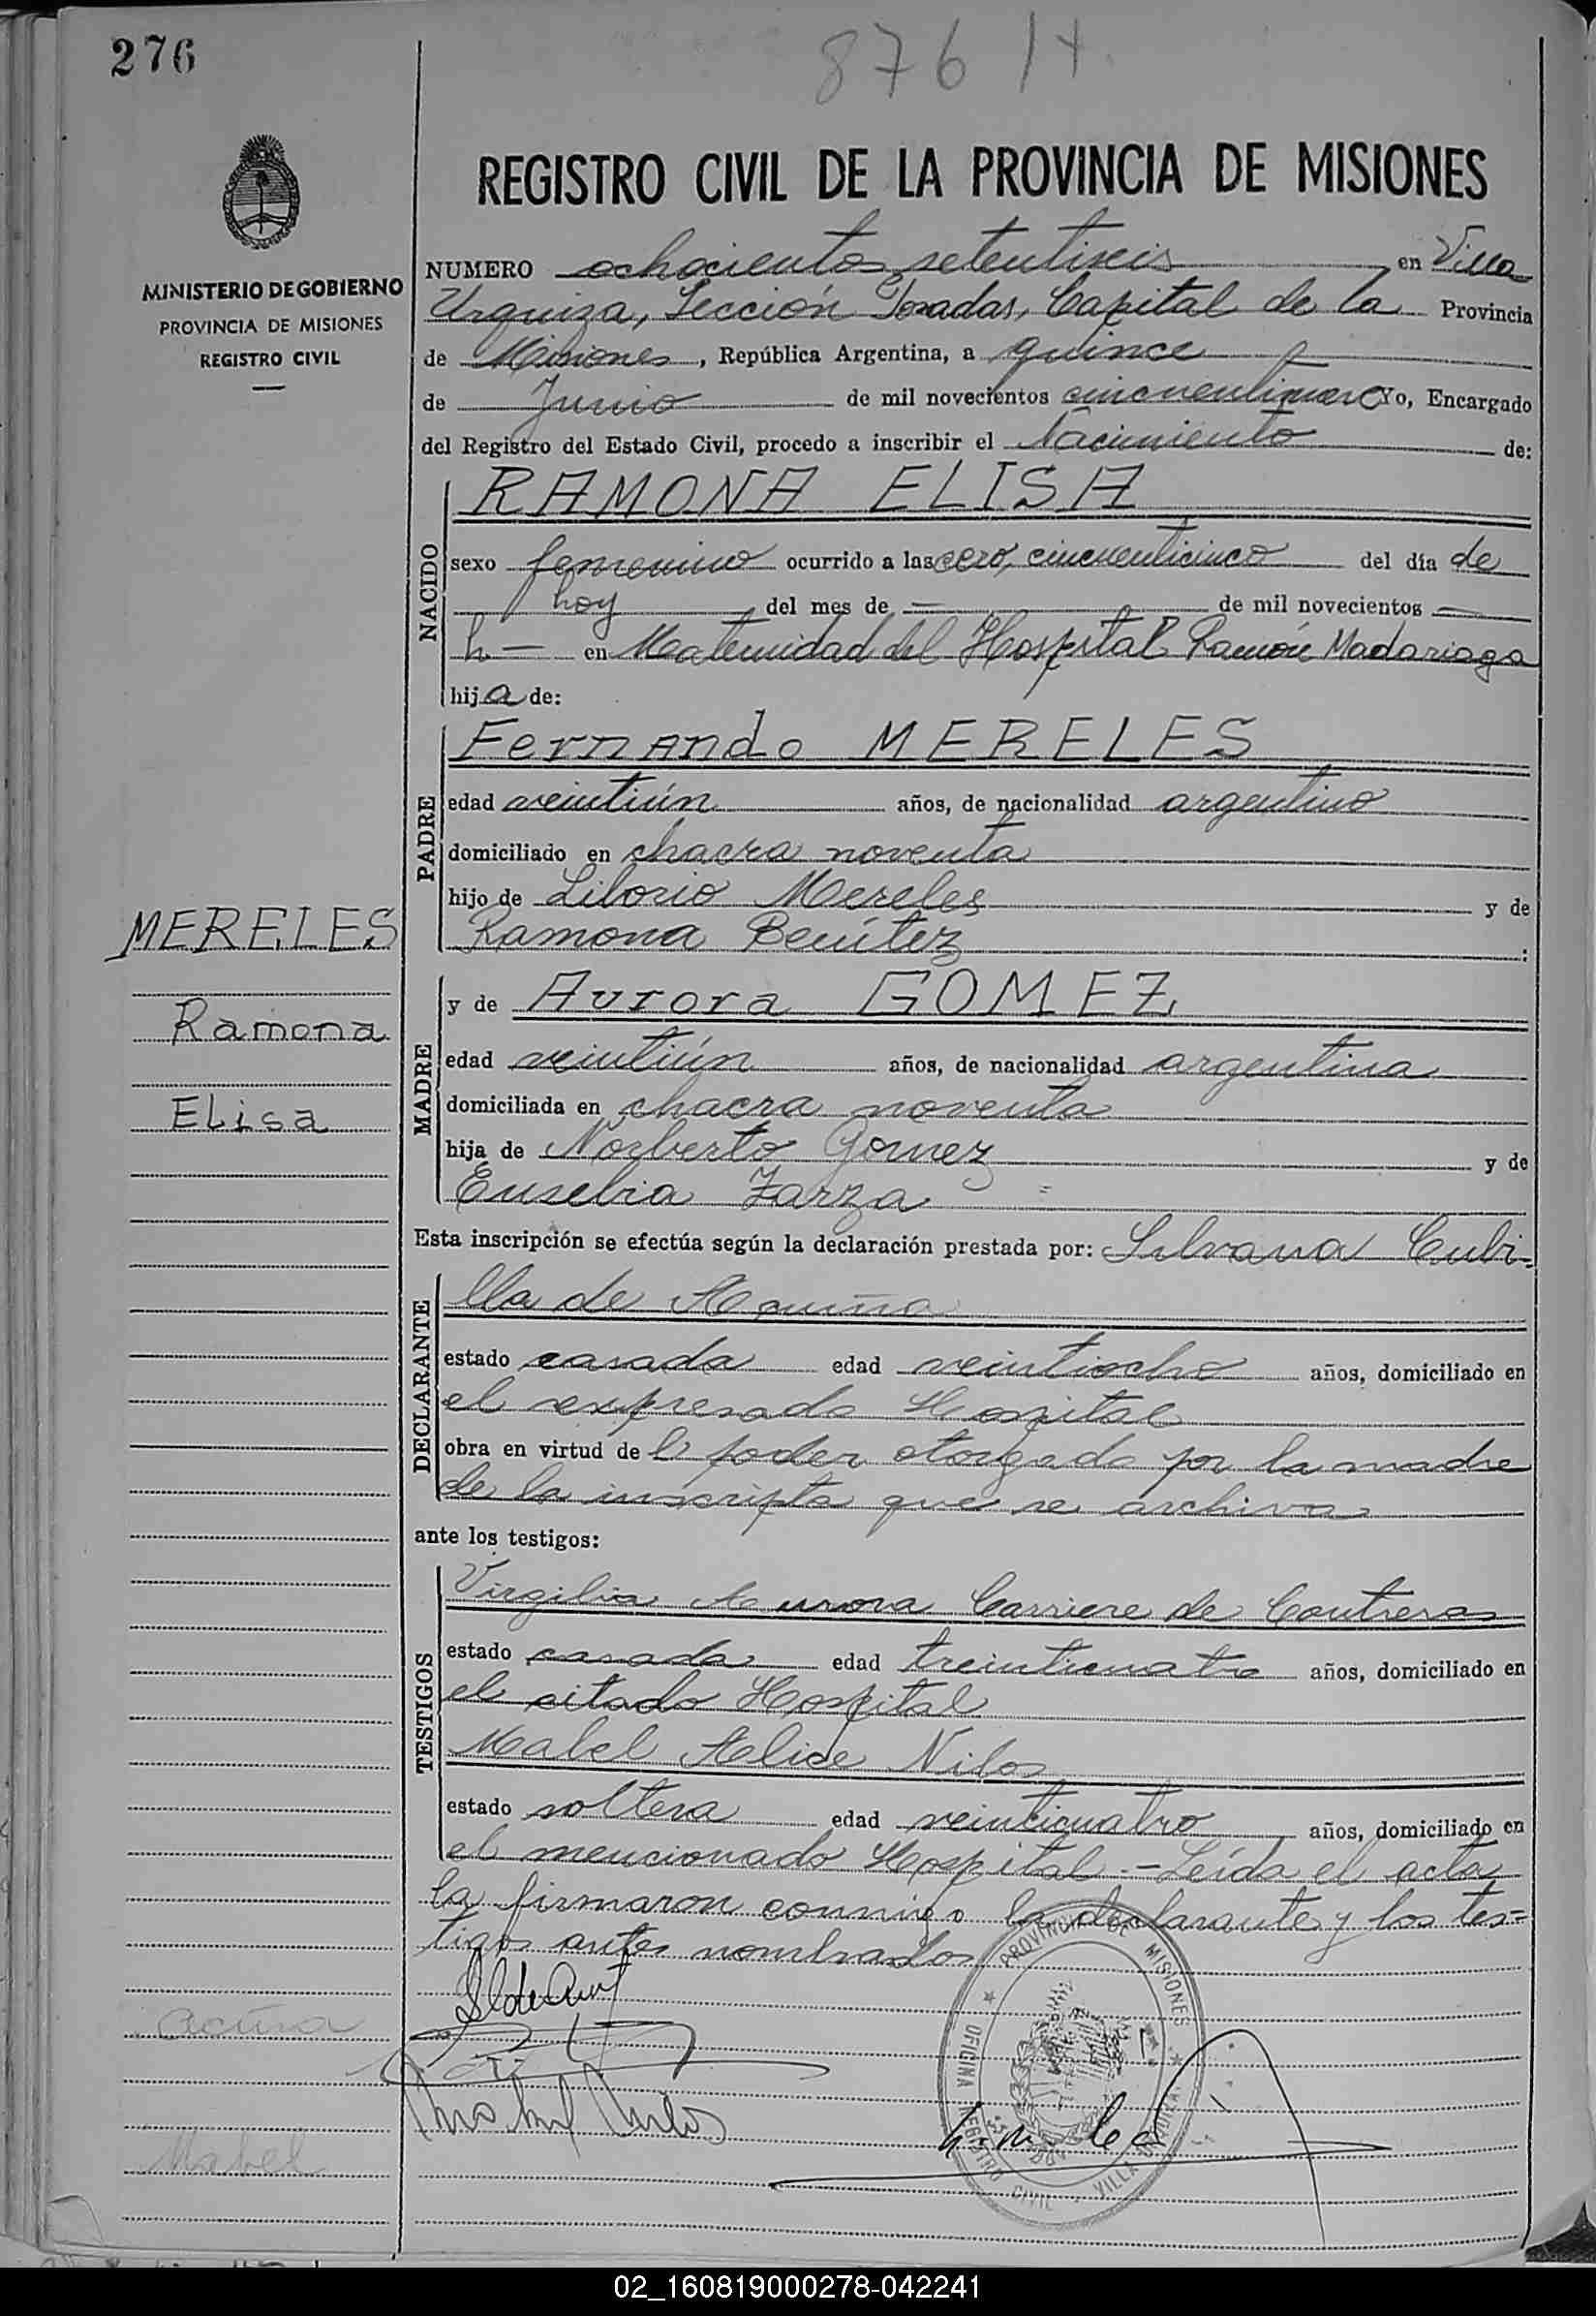 276
876 /t.
MINISTERIO DE GOBIERNO
PROVINCIA DE MISIONES
REGISTRO CIVIL
REGISTRO CIVIL DE LA PROVINCIA DE MISIONES
NUMERO ochocientos setentiseis en Villa
Urquiza, Sección Posadas, Capital de la Provincia
de Misiones, República Argentina, a quince
de Junio de mil novecientos Yo, Encargado
del Registro del Estado Civil, procedo a inscribir el Nacimiento de:
NACIDO
RAMONA ELISA
sexo femenino ocurrido a las cero, cincuenticinco del día de
hoy del mes de — de mil novecientos —
h — en Maternidad del Hospital Ramón Madariaga
hija de:
PADRE
Fernando MERELES
edad veintiún años, de nacionalidad argentino
domiciliado en chacra noventa
hijo de Liborio Mereles y de
Ramona Benítez :
MERELES
Ramona
Elisa
MADRE
y de Aurora GOMEZ
edad veintiún años, de nacionalidad argentina
domiciliada en chacra noventa
hija de Norberto Gomez y de
Eusebia Zarza =
Esta inscripción se efectúa según la declaración prestada por: Silvana Cubi=
DECLARANTE
lla de Acuña
estado casada edad veintiocho años, domiciliado en
el expresado Hospital
obra en virtud de el poder otorgado por la madre
de la inscripta que se archiva
ante los testigos:
TESTIGOS
Virgilia Aurora Carriere de Contreras
estado casada edad treinticuatro años, domiciliado en
el citado Hospital
Mabel Alice Nilos
estado soltera edad veinticuatro años, domiciliado en
el mencionado Hospital.- Leída el acta
la firmaron conmigo la declarante y los tes=
tigos antes nombrados
PROVINCIA DE MISIONES
OFICINA REGISTRO CIVIL - VILLA URQUIZA
Acuña
Mabel
02_160819000278-042241